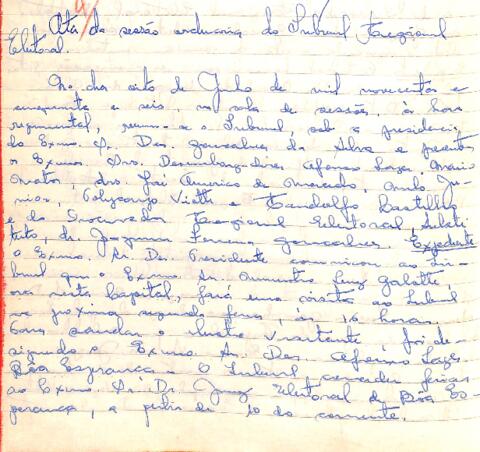 Ata da sessão ordinária do Tribunal Regional
Eleitoral.
No dia oito de Junho de mil novecentos e
cinquenta e seis, na sala de sessões, à hora
regimental, reuniu-se o Tribunal, sob a presidência
do Exmo. Sr. Des. Gonçalves da Silva e presentes
os Exmos. Srs. Desembargadores Afonso Lages, Mário
Matos, drs. José Américo de Macedo,
Júnior, Polycarpo Viotti e Tandolfo
e do Procurador Regional Eleitoral, Substi-
tuto, dr. Joaquim Ferreira Gonçalves. Expediente
O Exmo. Sr. Des. Presidente comunicou ao Tri-
bunal que o Exmo. Sr. Ministro Luiz Galotti,
ora nesta Capital, fará uma visita ao Tribunal
na próxima segunda feira, às 16 horas.
Para saudar o ilustre visitante, foi de-
signado o Exmo. Sr. Des. Afonso Lages
Bôa Esperança - O Tribunal concedeu férias
ao Exmo. Sr. Dr. Juiz Eleitoral de Bôa Es-
perança, a partir de 10 do corrente.